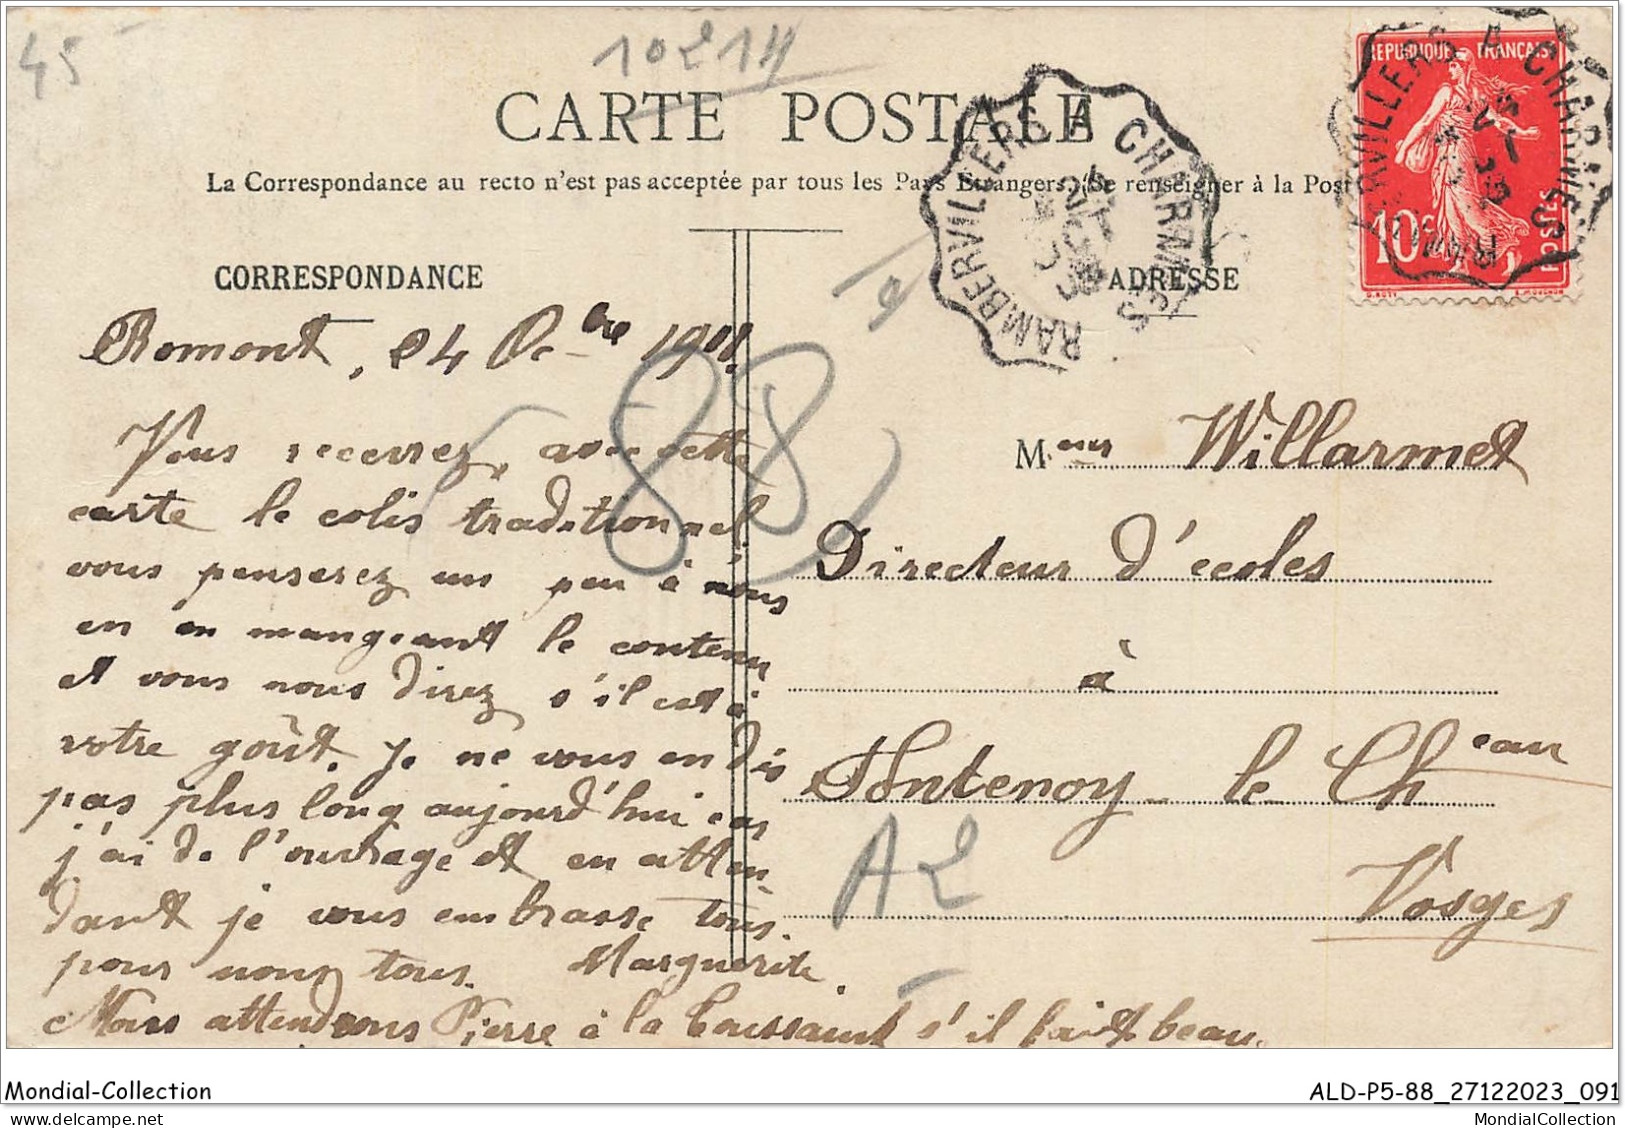 45
10214
CARTE POSTALE
La Correspondance au recto n'est pas acceptée par tous les Pays Etrangers. (Se renseigner à la Post
CORRESPONDANCE
ADRESSE
RAMBERVILLERS A CHARMES
REPUBLIQUE FRANÇAISE
10c
POSTES
RAMBERVILLERS A CHARMES
Romont, 24 Oc-bre 1911.
Vous recevrez, avec cette
carte le colis traditionnel
vous penserez un peu à nous
en en mangeant le contenu
et vous nous direz s'il est à
votre goût. Je ne vous en dis
pas plus long aujourd'hui car
j'ai de l'ouvrage et en atten-
dant je vous embrasse tous.
pour nous tous. Marguerite.
Nous attendrons Pierre à la Toussaint s'il fait beau.
88
Meur Willarmet
Directeur d'écoles
à
Fontenoy-le-Cheau
Vosges
A2
Mondial-Collection
ALD-P5-88_27122023_091
MondialCollection